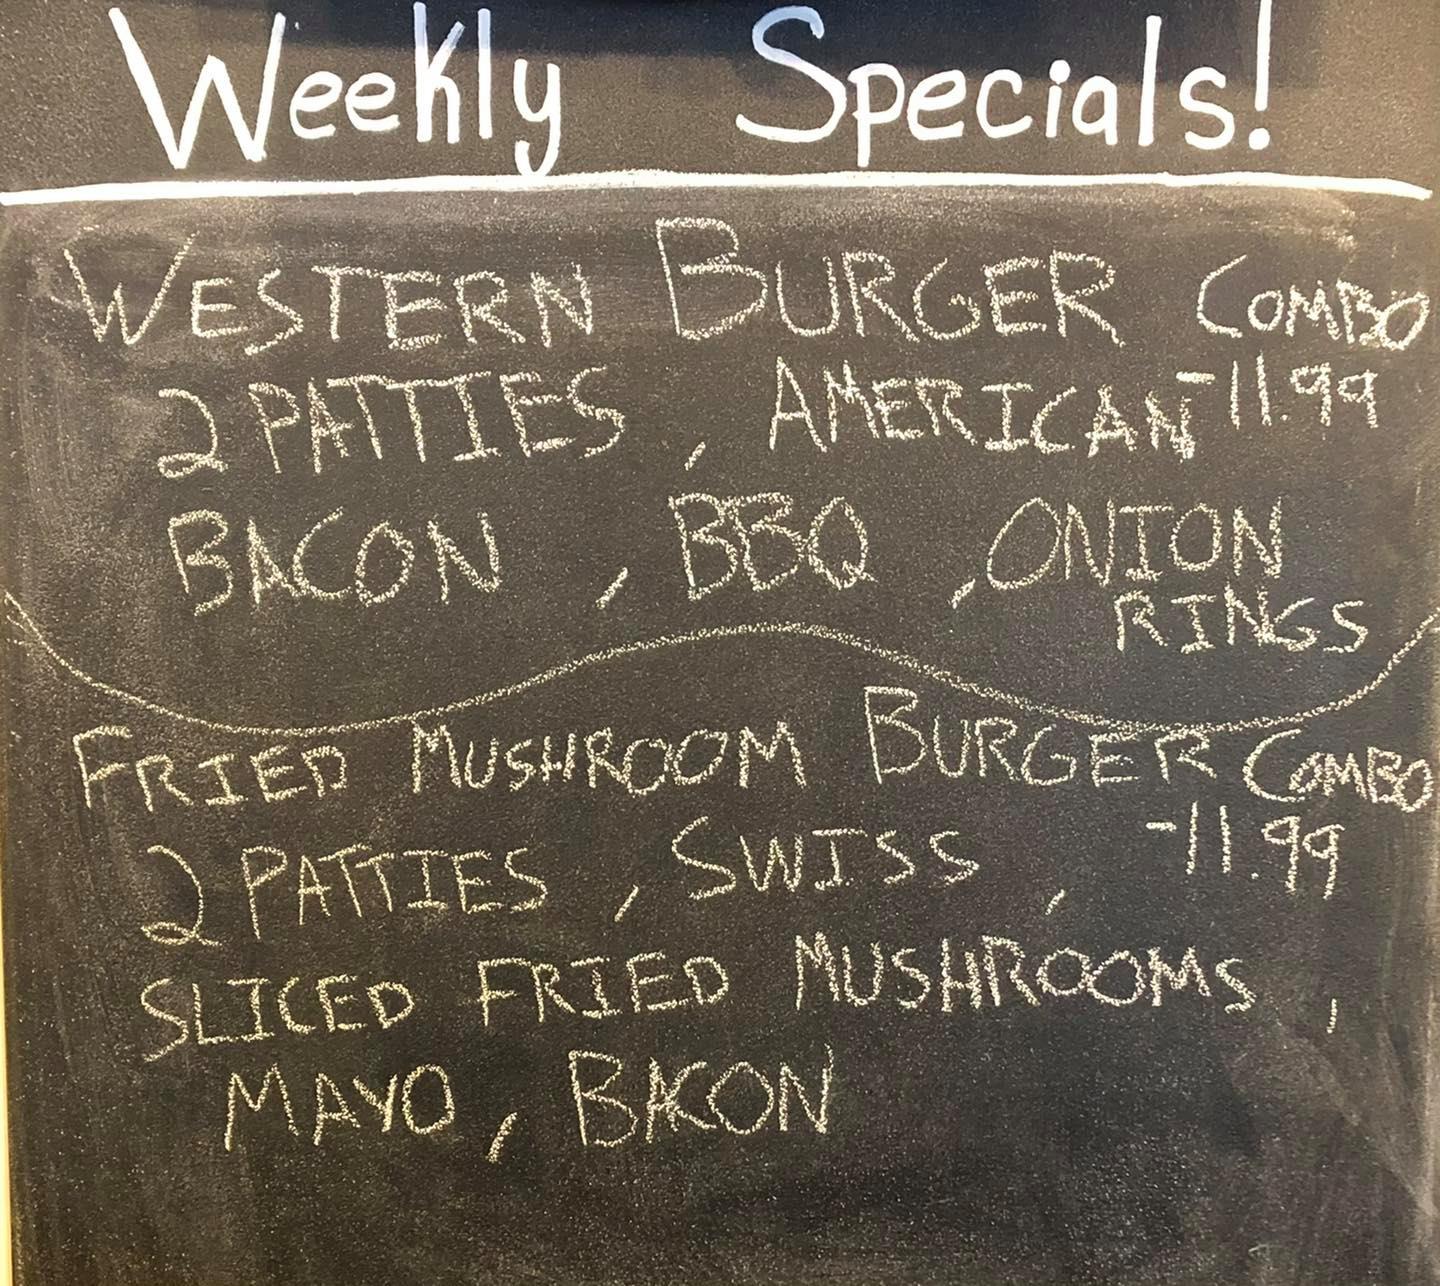 Weekly Specials!
WESTERN BURGER COMBO
-11.99
2 PATTIES, AMERICAN
BACON, BBQ, ONION
RINGS
FRIED MUSHROOM BURGER COMBO
-11.99
2 PATTIES, SWISS,
SLICED FRIED MUSHROOMS,
MAYO, BACON